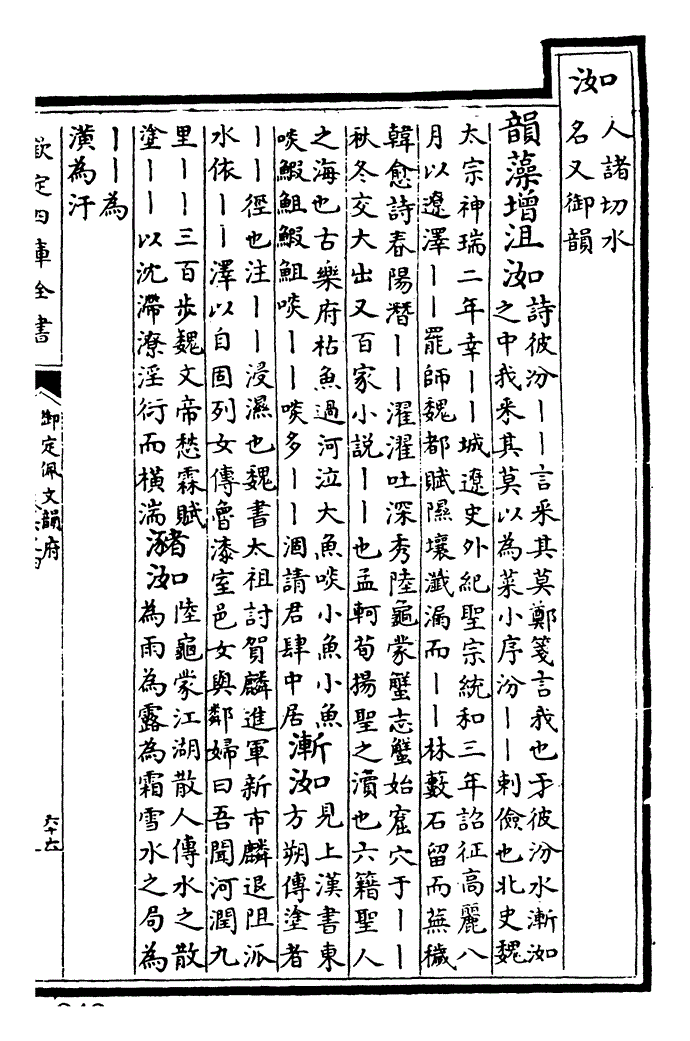 洳
人諸切水
名又御韻
韻藻增沮洳
詩彼汾丨丨言采其莫鄭箋言我也于彼汾水漸洳
之中我采其莫以為菜小序汾丨丨刺儉也北史魏
太宗神瑞二年幸丨丨城遼史外紀聖宗統和三年詔征高麗八
月以遼澤丨丨罷師魏都賦隰壤瀸漏而丨丨林藪石留而蕪穢
韓愈詩春陽潛丨丨濯濯吐深秀陸龜蒙蟹志蟹始窟穴于丨丨
秋冬交大出又百家小説丨丨也孟軻荀揚聖之瀆也六籍聖人
之海也古樂府枯魚過河泣大魚啖小魚小魚
啖鰕鮙鰕鮙啖丨丨啖多丨丨涸請君肆中居
漸洳
見上漢書東
方朔傳塗者
丨丨徑也注丨丨浸濕也魏書太祖討賀麟進軍新市麟退阻派
水依丨丨澤以自固列女傳魯漆室邑女與鄰婦曰吾聞河潤九
里丨丨三百步魏文帝愁霖賦
塗丨丨以沈滯潦淫衍而橫湍
瀦洳
陸龜蒙江湖散人傳水之散
為雨為露為霜雪水之局為
丨丨為
潢為汙
欽定四庫全書
御定佩文韻府
六十六